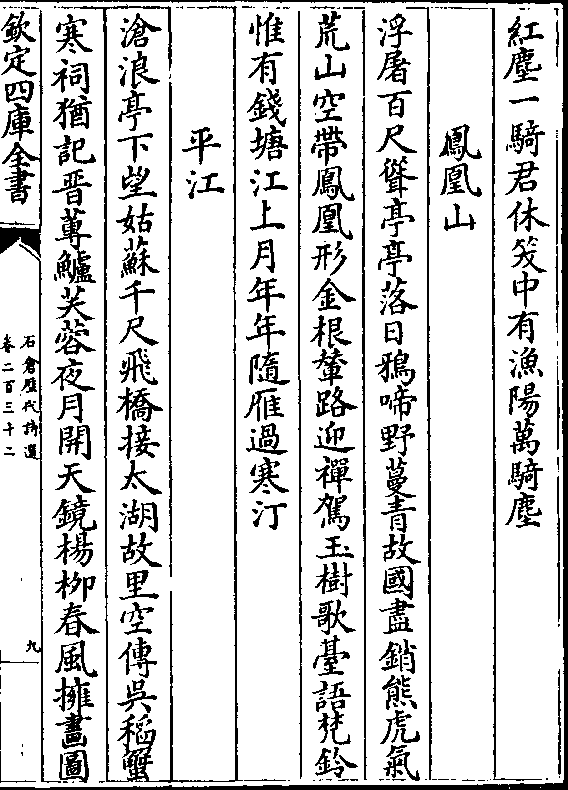 紅塵一騎君休笑中有漁陽萬騎塵
鳳凰山
浮屠百尺聳亭亭落日鴉啼野蔓青故國盡銷熊虎氣
荒山空帶鳳凰形金根輦路迎禪駕玉樹歌臺語梵鈴
惟有錢塘江上月年年隨雁過寒汀
平江
滄浪亭下望姑蘇千尺飛橋接太湖故里空傳吳稻蟹
寒祠猶記晋蓴鱸芙蓉夜月開天鏡楊柳春風擁畫圖
欽定四庫全書
石倉歷代詩選
卷二百三十二
九